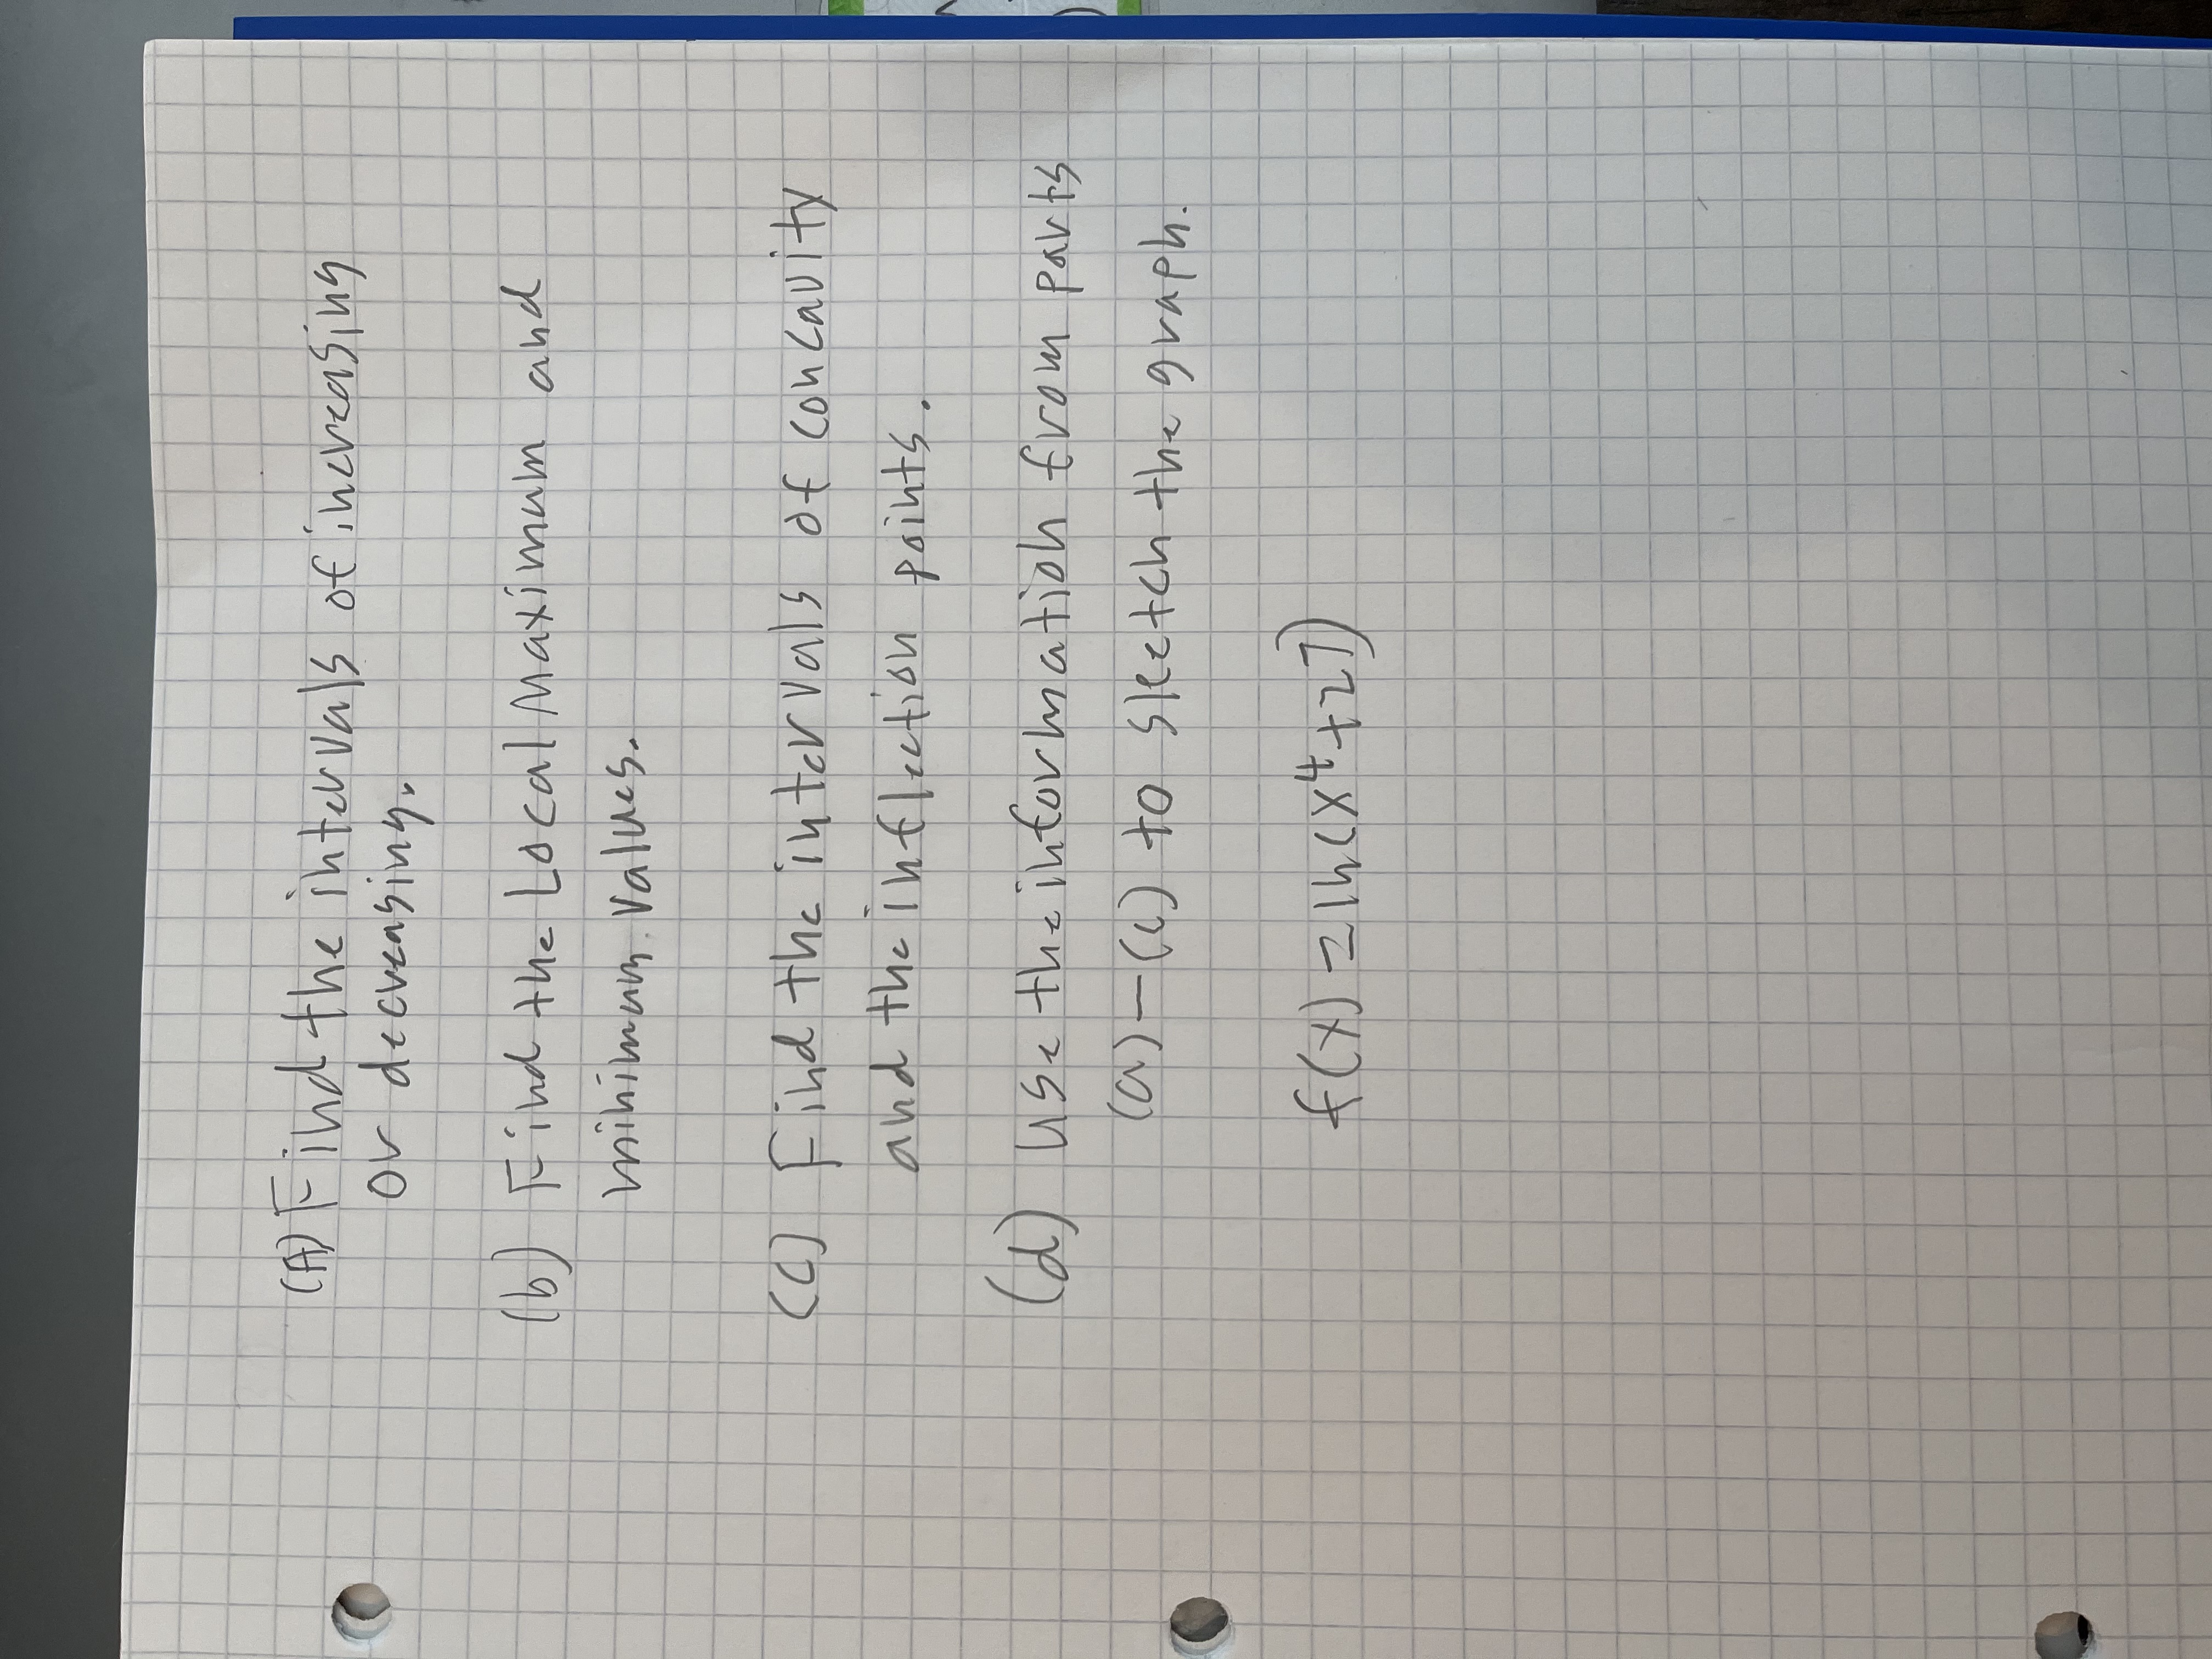 (A) Find the intervals of increasing
or decreasing.
(b) Find the Local Maximum and
minimum values.
(c) Find the intervals of concavity
and the inflection points.
(d) use the information from parts
(a)-(c) to sketch the graph.
f(x) = ln(x⁴+27)